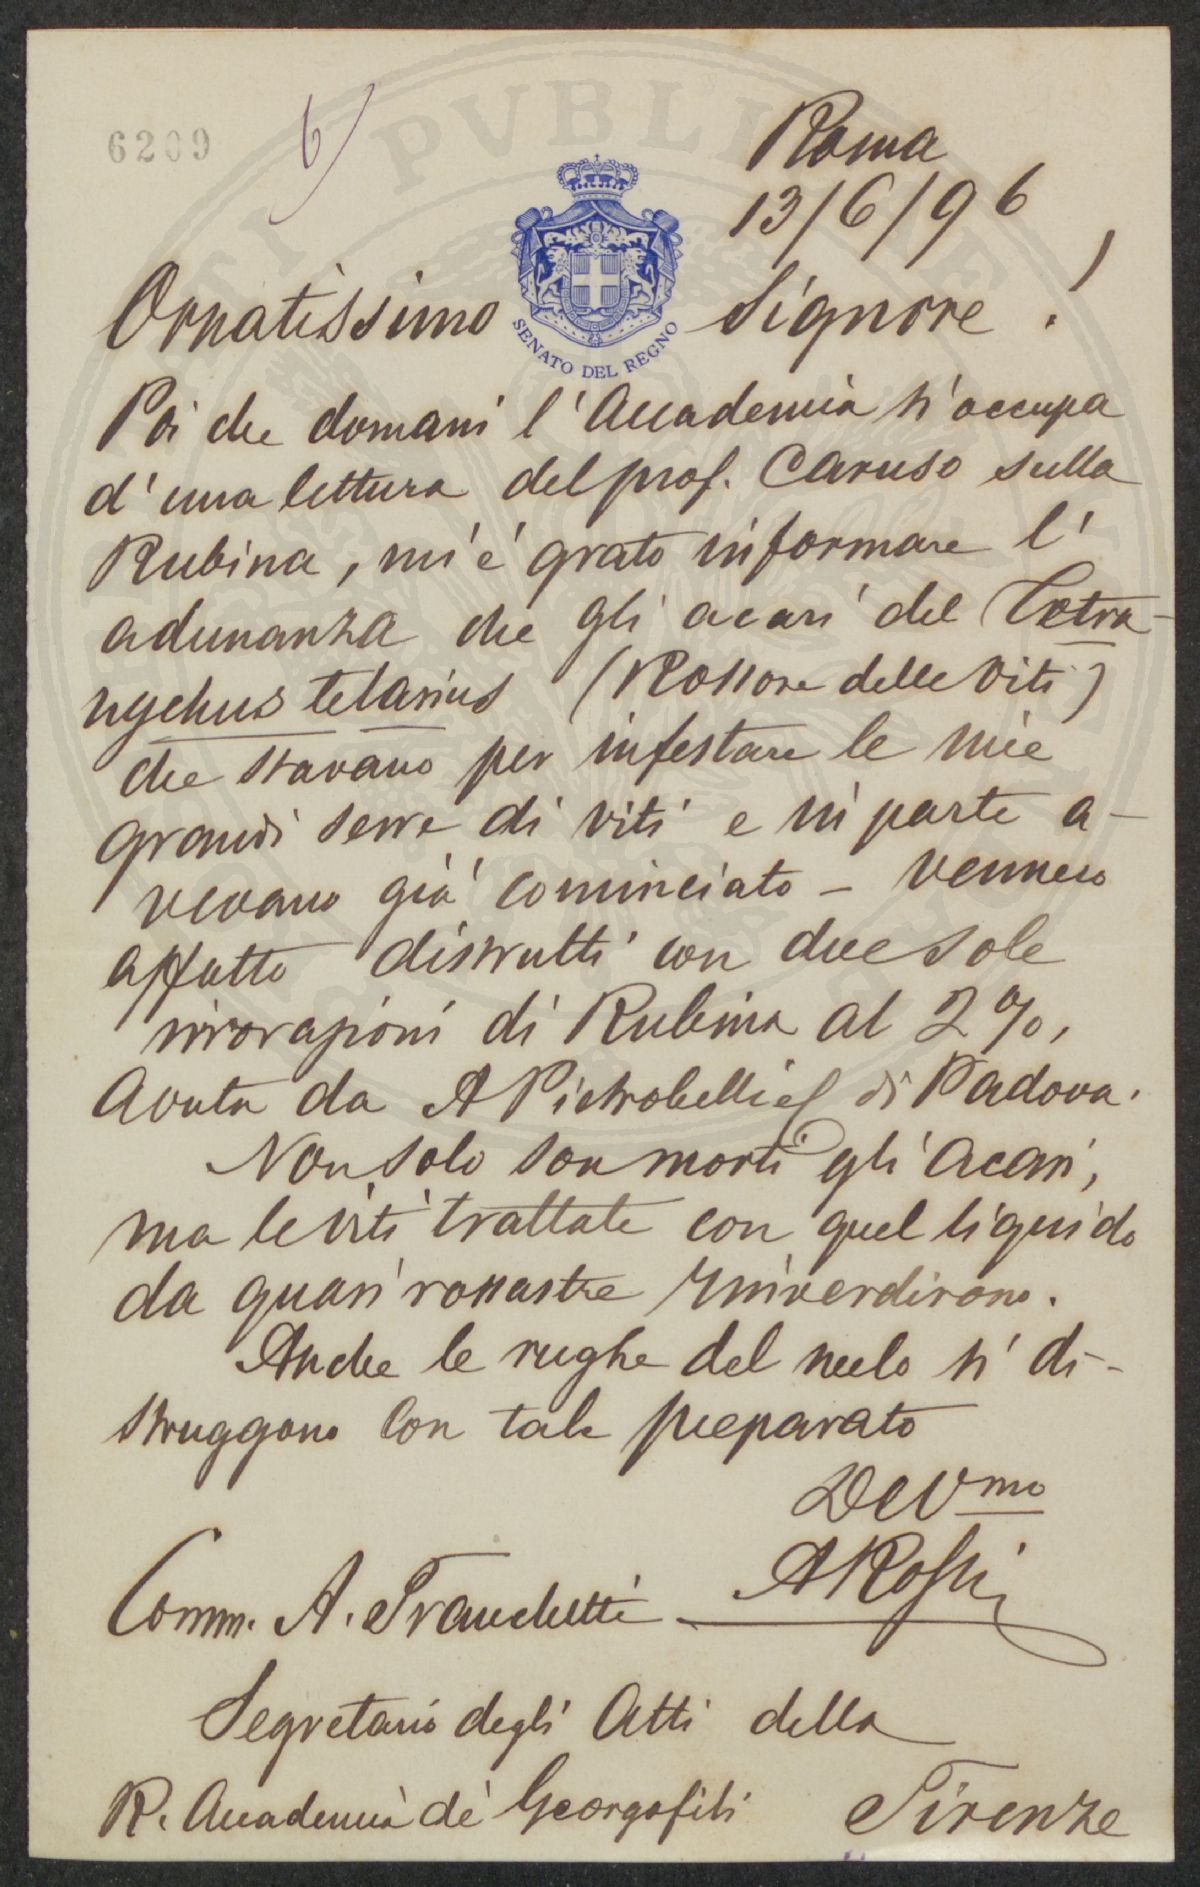 6209
6
Roma
13/6/96
Ornatissimo Signore!
SENATO DEL REGNO
Poi che domani l'Accademia s'occupa
d'una lettura del prof. Caruso sulla
Rubina, mi è grato informare l'
adunanza che gli acari del Tetra-
nychus telarius (Rossore delle Viti)
che stavano per infestare le mie
grandi serre di viti e in parte a-
vevano già cominciato – vennero
affatto distrutti con due sole
irrorazioni di Rubina al 2%,
avuta da A Pietrobelli di Padova.
Non solo son morti gli acari,
ma le viti trattate con quel liquido
da quasi rossastre rinverdirono.
Anche le rughe del melo si di-
struggono con tale preparato
Devmo
ARossi
Comm. A. Franchetti
Segretario degli Atti della
R. Accademia de' Georgofili Firenze